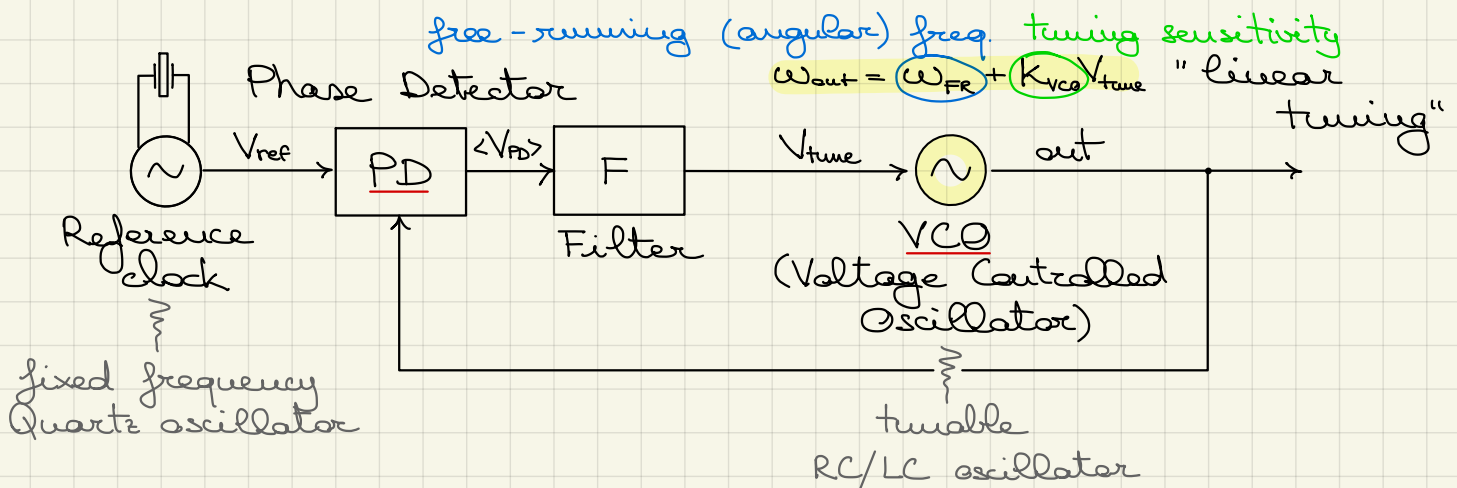 free-running (angular) freq. tuning sensitivity
Phase Detector
ω_out = ω_FR + K_VCO V_tune "linear tuning"
V_ref
PD
<V_PD>
F
V_tune
out
Reference
clock
Filter
VCO
(Voltage Controlled
Oscillator)
fixed frequency
Quartz oscillator
tunable
RC/LC oscillator